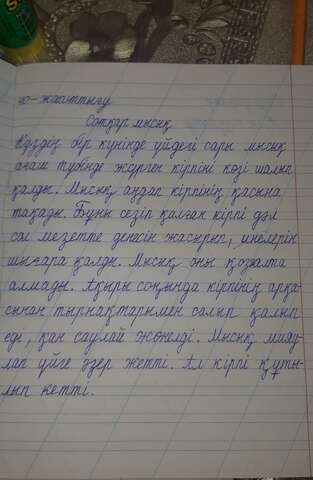 10-жаттығу
Сотқар мысық
Күздің бір күнінде үйдегі сары мысық
ағаш түбінде жүрген кірпіні көзі шалып
қалды. Мысық аңдап кірпінің қасына
тақады. Бұны сезіп қалған кірпі дәл
сол мезетте денесін жасырып, инелерін
шығара қалды. Мысық оны қозғалта
алмады. Ақыры соңында кірпінің арқа-
сынан тырнақтарымен салып қалып
еді, қан саулай жөнелді. Мысық мияу-
лап үйге әзер жетті. Ал кірпі құты-
лып кетті.